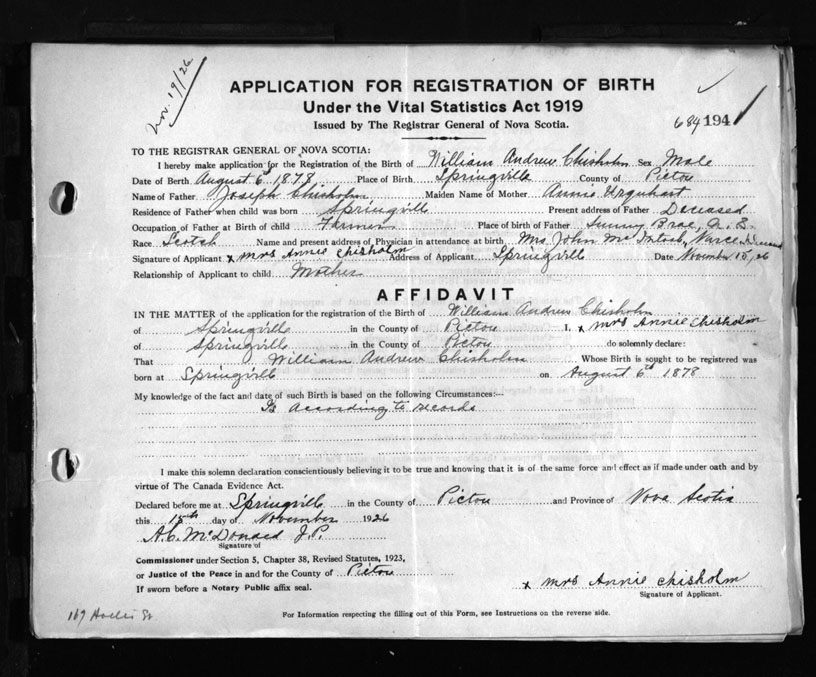 Nov. 19/26
APPLICATION FOR REGISTRATION OF BIRTH
Under the Vital Statistics Act 1919
Issued by The Registrar General of Nova Scotia.
684 194
TO THE REGISTRAR GENERAL OF NOVA SCOTIA:
I hereby make application for the Registration of the Birth of William Andrew Chisholm Sex Male
Date of Birth August 6th 1878 Place of Birth Springville County of Pictou
Name of Father Joseph Chisholm Maiden Name of Mother Annie Urquhart
Residence of Father when child was born Springville Present address of Father Deceased
Occupation of Father at Birth of child Farmer Place of birth of Father Sunny Brae, N. S.
Race Scotch Name and present address of Physician in attendance at birth Mrs John McIntosh, Nurse Deceased
Signature of Applicant x mrs Annie Chisholm Address of Applicant Springville Date November 15, 26
Relationship of Applicant to child Mother
AFFIDAVIT
IN THE MATTER of the application for the registration of the Birth of William Andrew Chisholm
of Springville in the County of Pictou I, x mrs Annie Chisholm
of Springville in the County of Pictou do solemnly declare:
That William Andrew Chisholm Whose Birth is sought to be registered was
born at Springville on August 6th 1878
My knowledge of the fact and date of such Birth is based on the following Circumstances:—
Is According to records
I make this solemn declaration conscientiously believing it to be true and knowing that it is of the same force and effect as if made under oath and by
virtue of The Canada Evidence Act.
Declared before me at Springville in the County of Pictou and Province of Nova Scotia
this 15th day of November 1926
A.C. McDonald J.P.
Signature of
Commissioner under Section 5, Chapter 38, Revised Statutes, 1923,
or Justice of the Peace in and for the County of Pictou
If sworn before a Notary Public affix seal.
x mrs Annie Chisholm
Signature of Applicant.
169 Hollis St
For Information respecting the filling out of this Form, see Instructions on the reverse side.